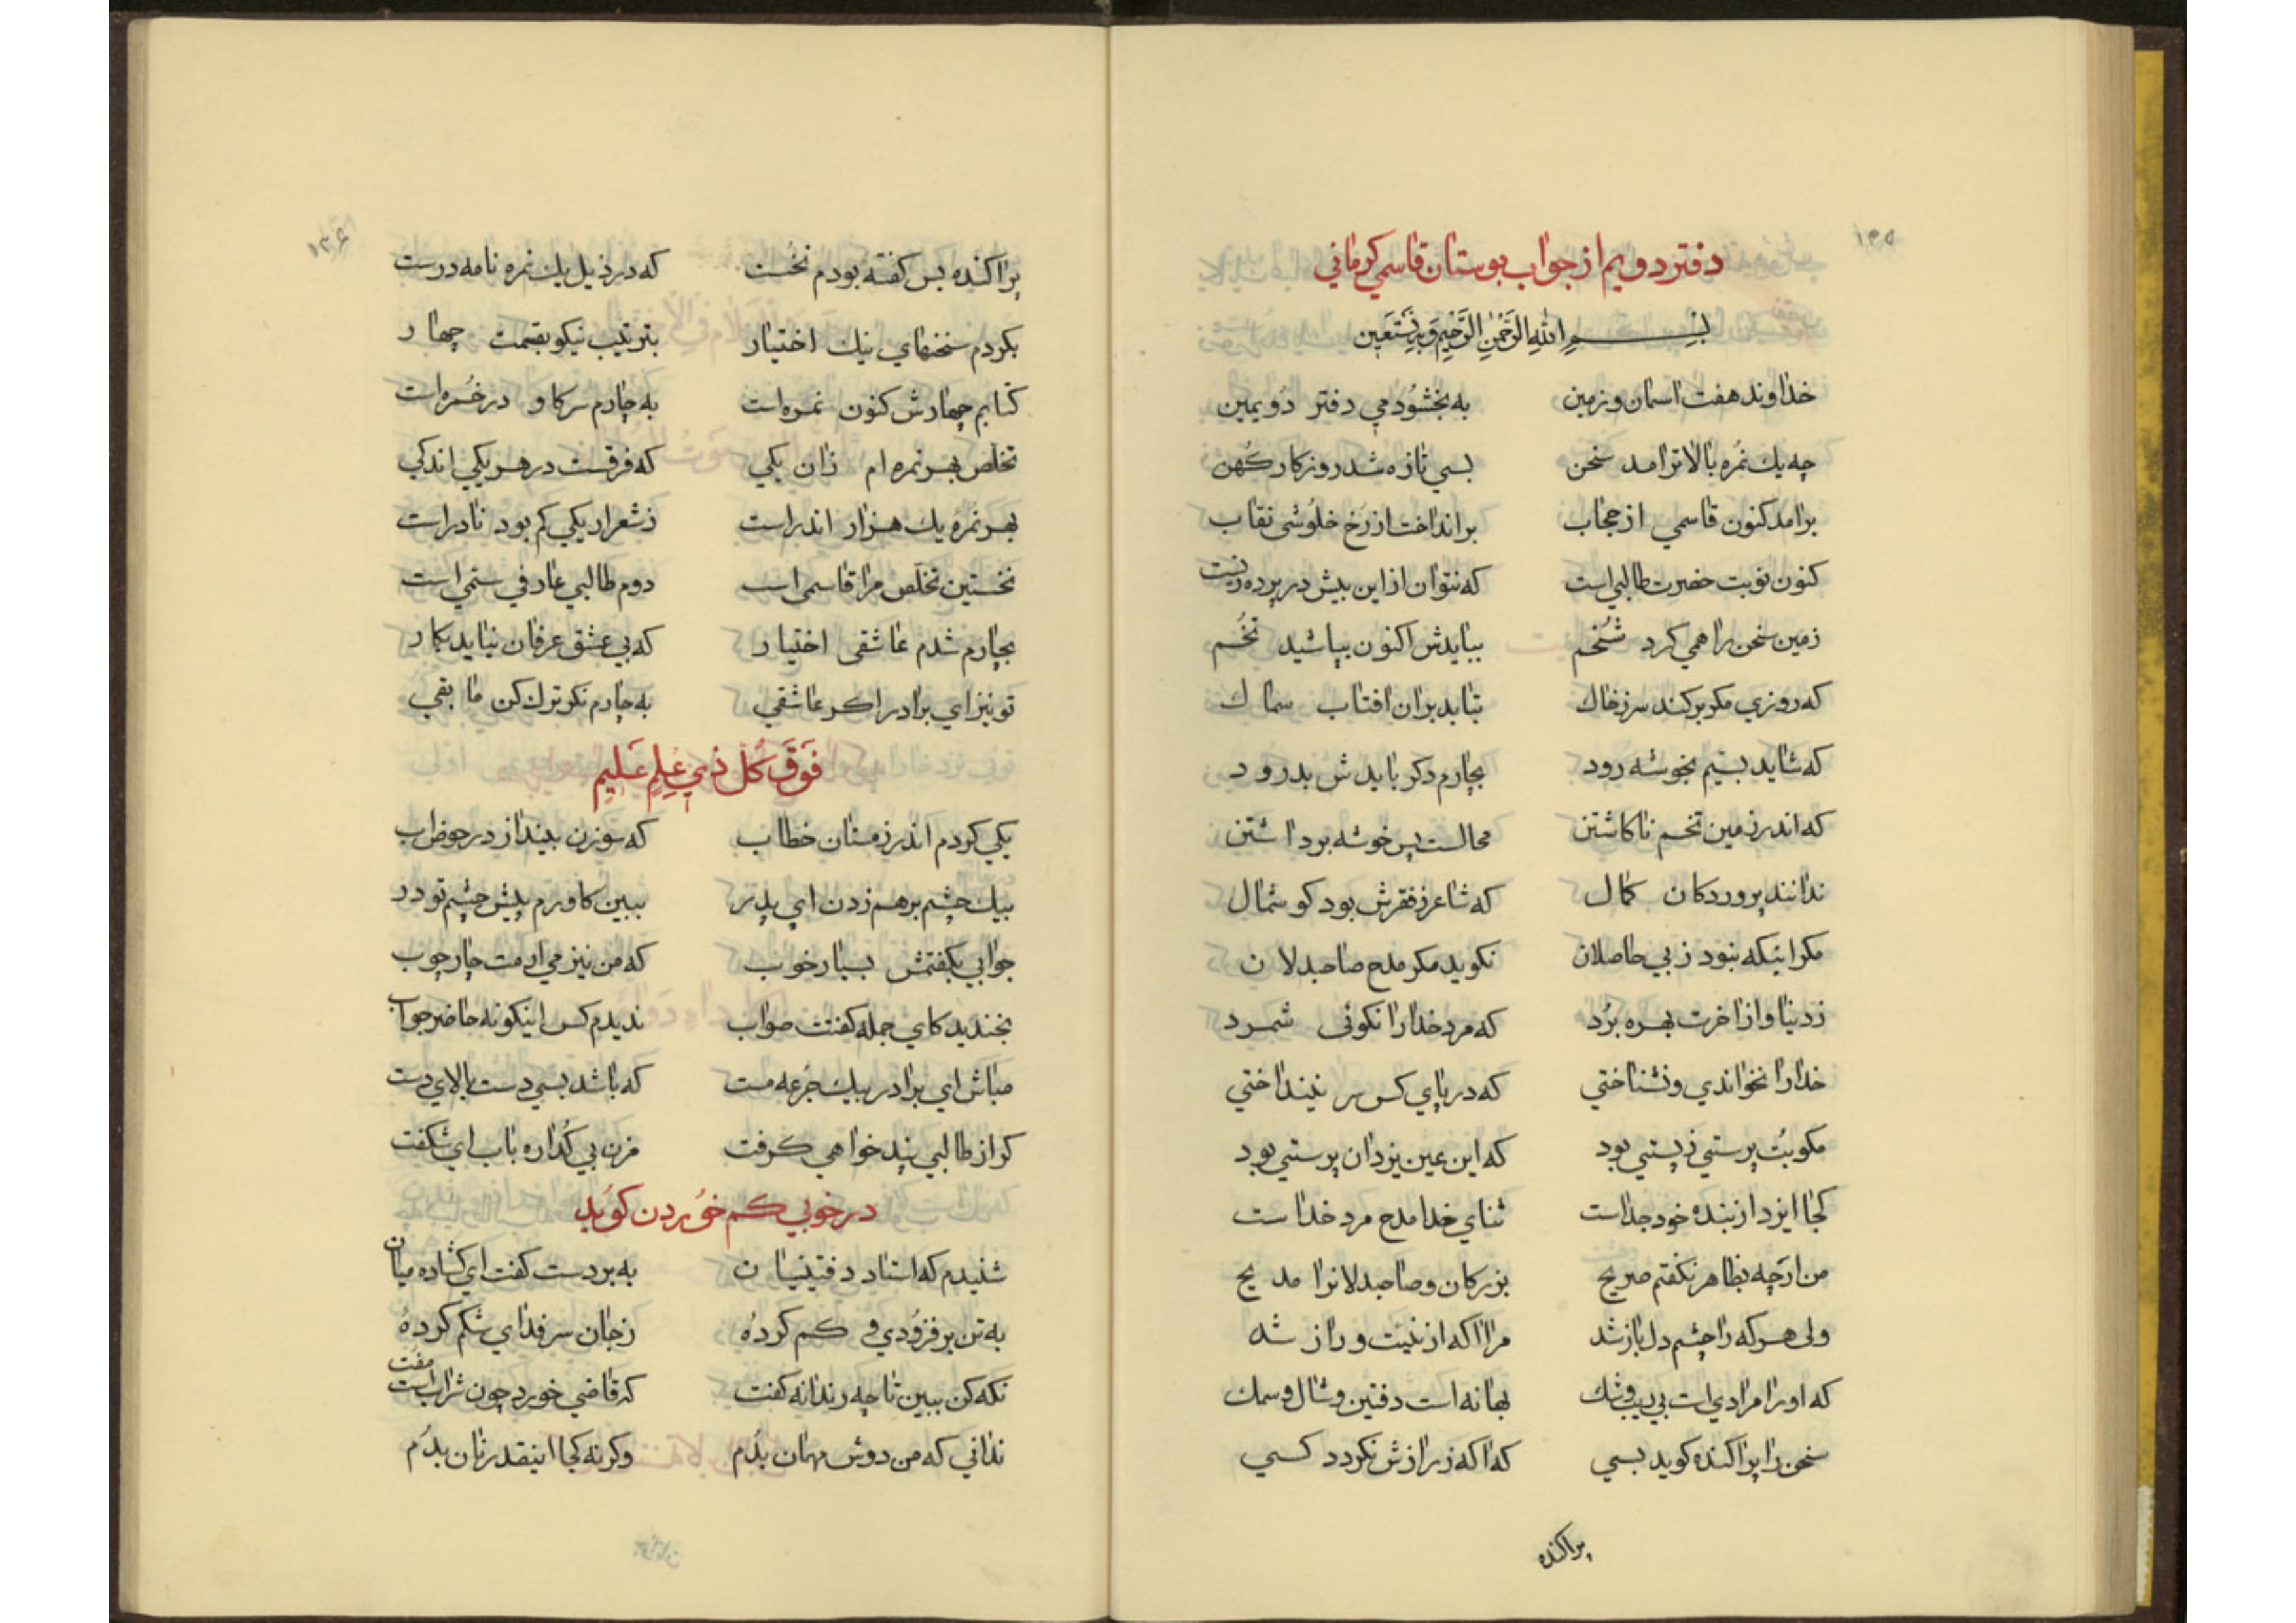 ۱۳۵
دفتر دویم از جواب بوستان قاسمي کرماني
بسم الله الرحمن الرحیم وبه نستعین
خداوند هفت اسمان و زمین به بخشود مي دفتر دویمین
چه یك نمره بالاتر امد سخن بسي تازه شد روزکار کهن
برامد کنون قاسمي از حجاب برانداخت از رخ خلوشی نقاب
کنون نوبت حضرت طالبي است که نتوان از این بیش در پرده زیست
زمین سخن را همي کرد شخم ببایدش اکنون بپاشید تخم
که روزي مکر برکند سر ز خاك بتابد بران افتاب سماك
که شاید بتیم بخوشه رود بچارم دکر بایدش بدرود
که اندر زمین تخم ناکاشتن محالست پس خوشه برداشتن
ندانند پروردکان کمال که شاعر ز فقرش بود کوشمال
مکر اینکه نبود ز بي حاصلان نکوید مکر مدح صاحبدلان
ز دنیا و از اخرت بهره برد که مرد خدا را نکوئی شمرد
خدا را نخواندي و نشناختي که در پاي کس سر نینداختي
مکو بت پرستي ز پستي بود که این عین یزدان پرستي بود
کجا ایزد از بنده خود جداست ثناي خدا مدح مرد خداست
من ارچه بظاهر نکفتم صریح بزرکان و صاحبدلانرا مدیح
ولی هر که را چشم دل باز شد مرا اکه از نیت و راز شد
که او را مرادي است بي ریب و شك بهانه است دفتین و شال و سمك
سخن را پراکنده کوید بسي که اکه ز رازش نکردد کسي
پراکنده
۱۳۶
پراکنده بس کفته بودم نخست که در ذیل یك نمره نامه درست
بکردم سخنهاي نیك اختیار بترتیب نیکو بقسمت چهار
کتابم چهارش کنون نمره است به چارم سرکاو در خمره است
تخلص بهر نمره ام زان یکي که فرقست در هر یکي اندکي
بهر نمره یك هزار اندر است ز شعر ار یکي کم بود نادر است
نخستین تخلص مرا قاسمی است دوم طالبي عارفي سیمي است
بچارم شدم عاشقی اختیار که بي عشق عرفان نیاید بکار
تو نیز اي برادر اکر عاشقي به چارم نکر ترك کن ما بقي
فوق کل ذي علم علیم
یکي کردم اندر زمستان خطاب که سوزن بینداز در حوض اب
بیك چشم برهم زدن اي پدر ببین کاورم پیش چشم تو در
جوابي بکفتمش بسیار خوب که من نیز مي ارمت چارچوب
بخندید کاي جمله کفتت صواب ندیدم کس اینکونه حاضر جواب
مباش اي برادر بیك جرعه مست که باشد بسي دست بالاي دست
کر از طالبي پند خواهي کرفت مزن بي کداره باب اي شکفت
در خوبي کم خوردن کوید
شنیدم که استاد دفتینیان به بردست کفت اي کشاده میان
به تن برفزودي و کم کرده ز جان سر فداي شکم کرده
نکه کن ببین تا چه رندانه کفت که قاضي خورد چون شراب است مفت
ندانی که من دوش مهمان بدم وکرنه کجا اینقدر نان بدم